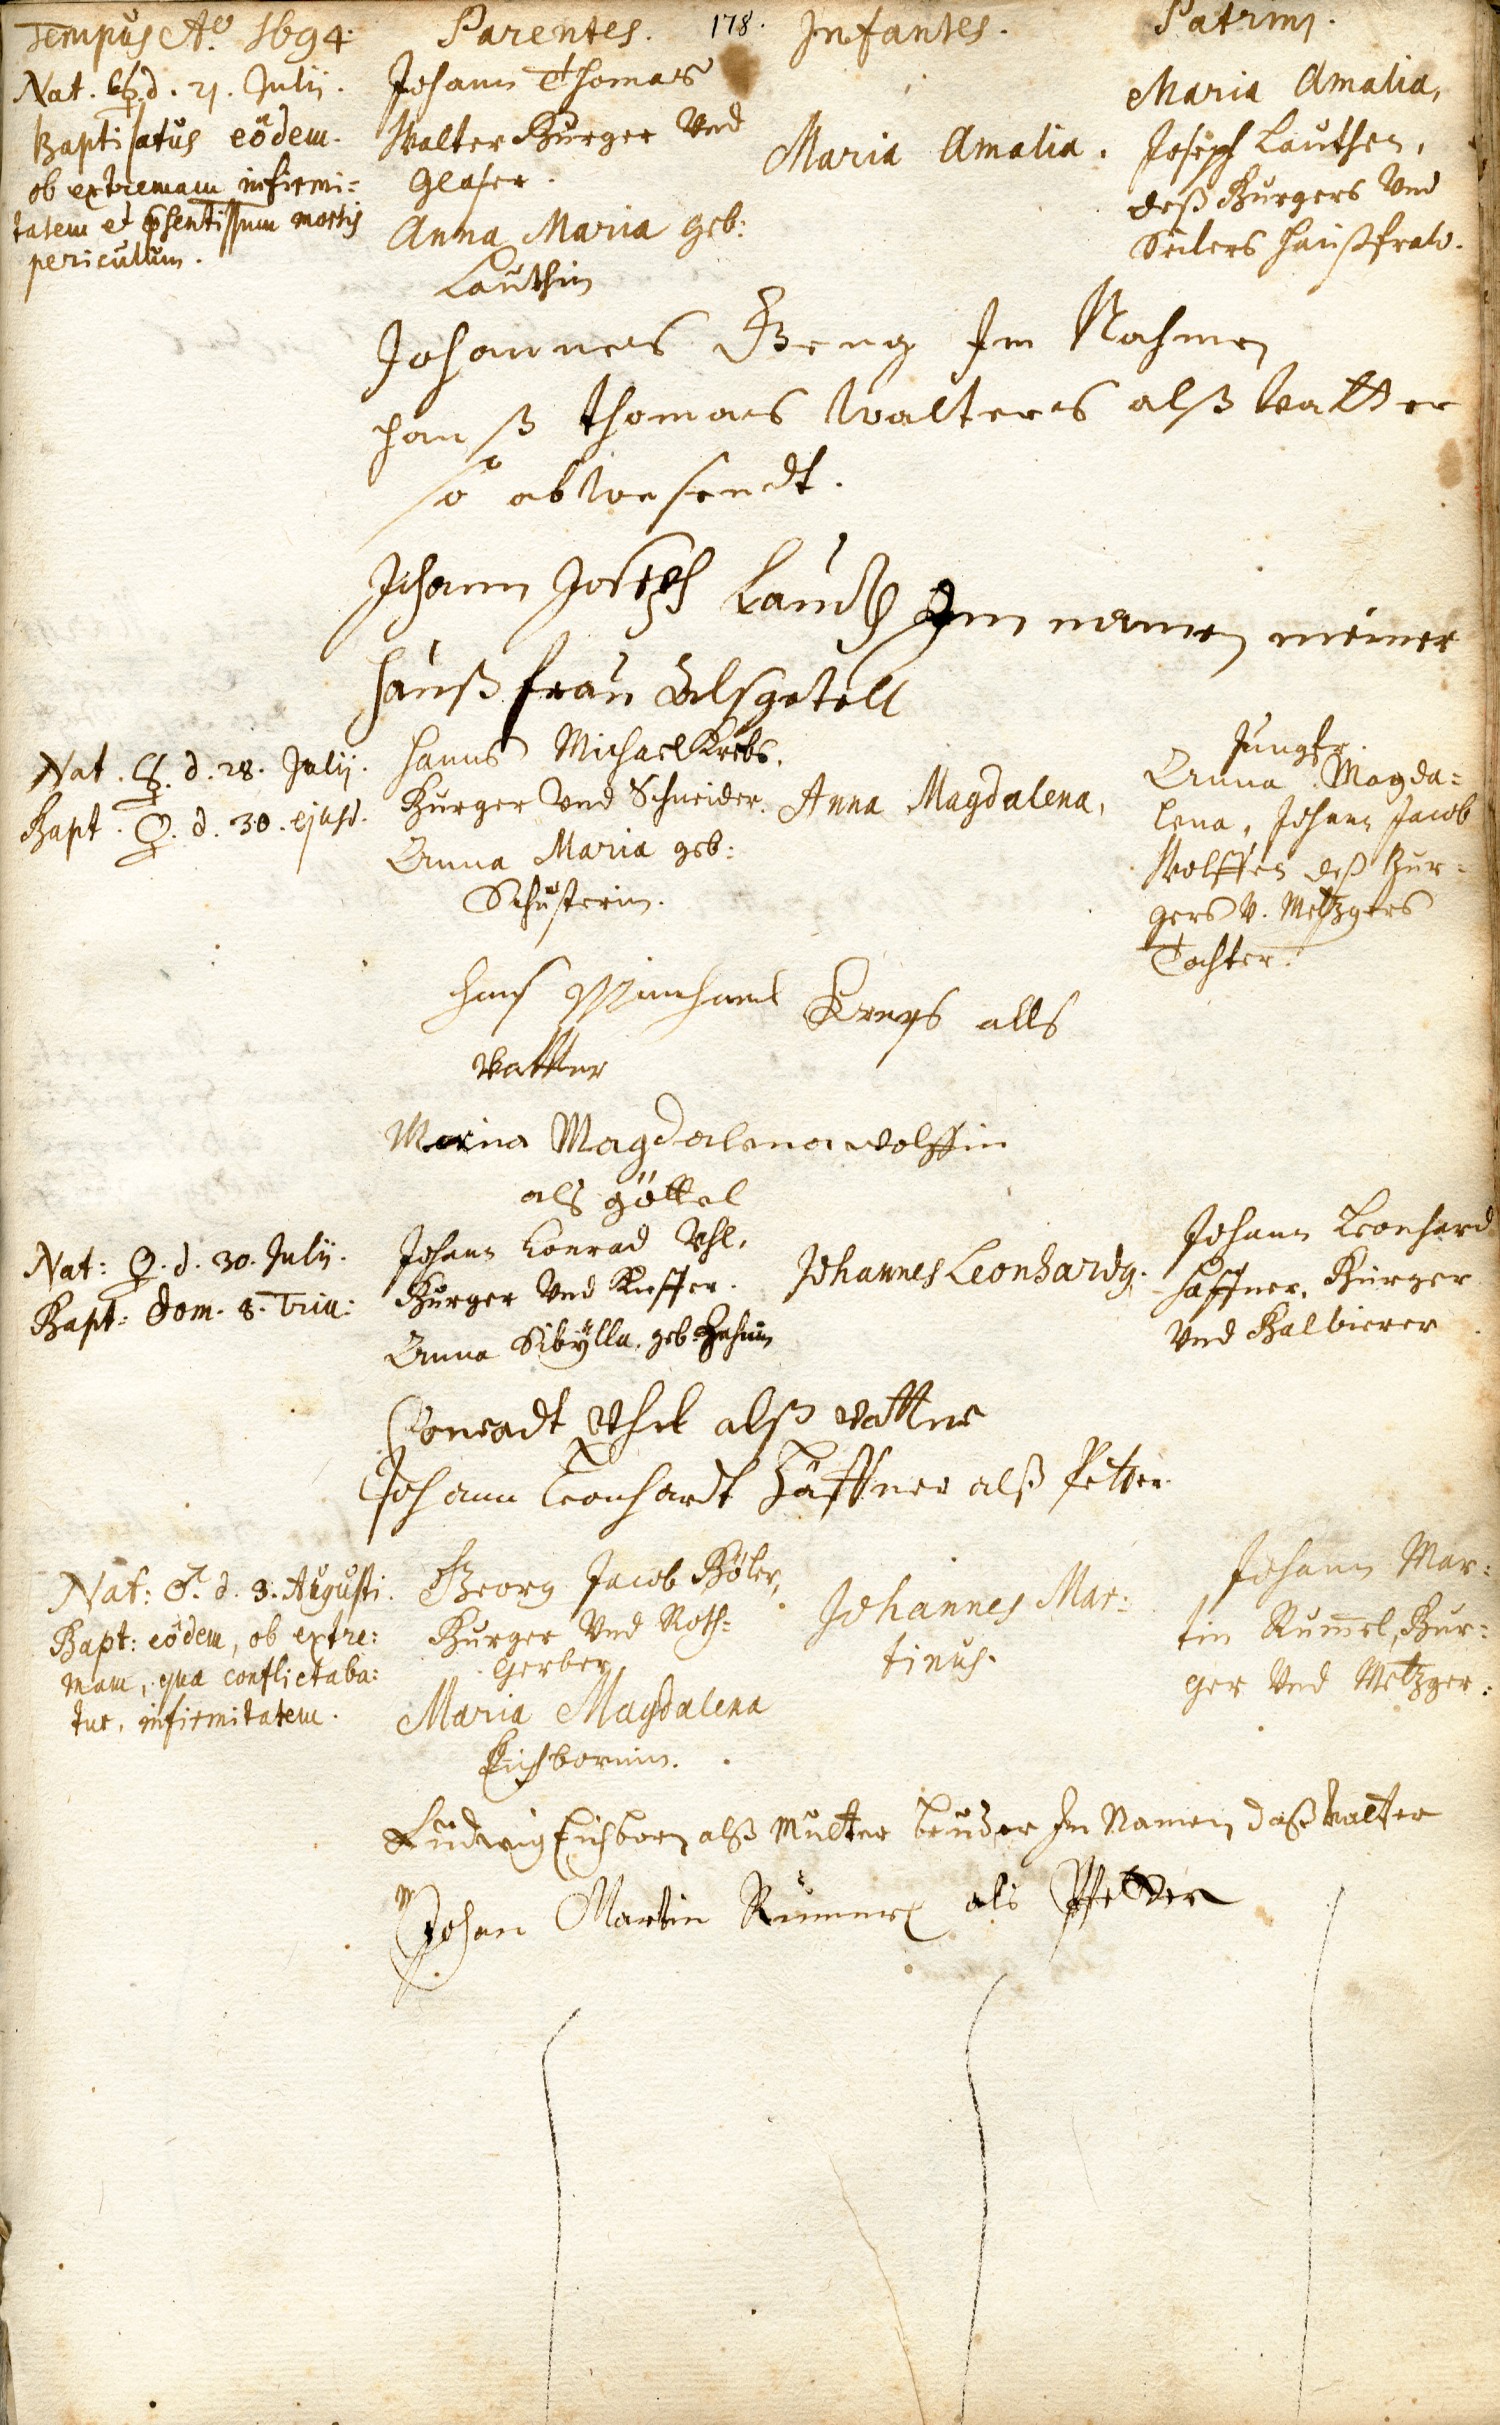 178.
Tempus Aō. 1694.
Nat. d. 21. Julij.
Baptisatus eodem.
ob extremam infirmi=
tatem et psentissum mortis
periculum.
Parentes.
Johann Thomas
Walter Burger Vnd
Glaser.
Anna Maria geb:
Lauthin
Infantes.
Maria Amalia.
Patrini.
Maria Amalia,
Joseph Lauthen,
deß Burgers Vnd
Seilers Haußfraw.
Johannes Beng Im Nahmen
Hanß Thomas Walters alß Vatter
so abwesendt.
Johann Joseph Lauth Im namen meiner
haußfrau
Nat. ☿. d. 28. Julij.
Bapt. ♀. d. 30. ejusd.
Hanns Michael Krebs.
Burger Vnd Schneider.
Anna Maria geb:
Schusterin.
Anna Magdalena,
Jungfr.
Anna Magda=
lena, Johann Jacob
Wolffen deß Bur=
gers V. Metzgers
Tochter.
Hans Michael Kreps alls
Vatter
Maria Magdalena wolffin
als göttel
Nat: ♀. d. 30. Julij.
Bapt: Dom. 8. Trin:
Johann Conrad Vhl,
Burger Vnd Kieffer.
Anna Sibÿlla, geb.
Johannes Leonhardg.
Johann Leonhard
Haffner, Burger
Vnd Balbierer
Conradt Vhel alß Vatter
Johann Leonhardt Häffner alß Petter
Nat: ♂. d. 3. Augusti.
Bapt: eodem, ob extre:
mam, qua conflictaba:
tur, infirmitatem.
Georg Jacob Böler,
Burger Vnd Roth=
gerber
Maria Magdalena
Eichbornin.
Johannes Mar:
tinus.
Johann Mar:
tin Rum̄el, Bur=
ger Vnd Metzger.
Ludwig Eichborn alß Mutter bruder Im Namen daß Vatter
Johan Martin Rummel als Pfetter